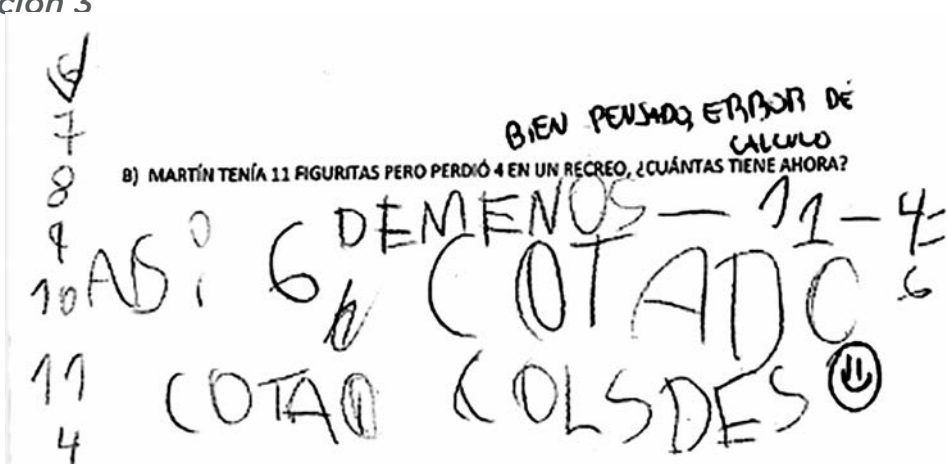 ción 3
6
7
8
9
10
11
4
BIEN PENSADO, ERROR DE
CALCULO
B) MARTÍN TENÍA 11 FIGURITAS PERO PERDIÓ 4 EN UN RECREO, ¿CUÁNTAS TIENE AHORA?
DEMENOS — 11 - 4 =
6
ASi 6 COTADO
COTAO COLSDES